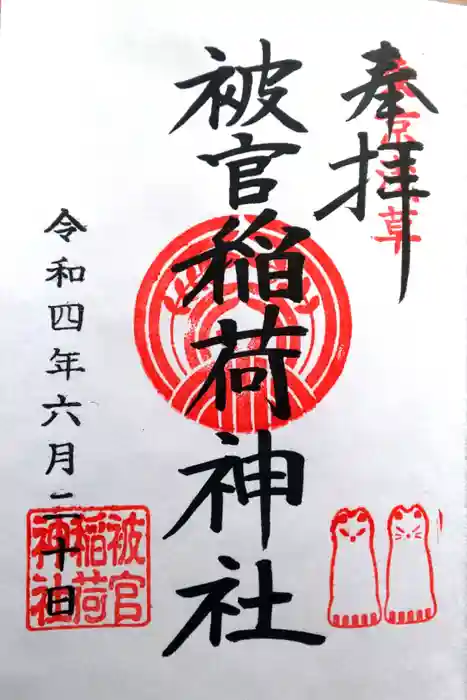 奉拝
東京浅草
被官稲荷神社
令和四年六月二十日
被官
稲荷
神社